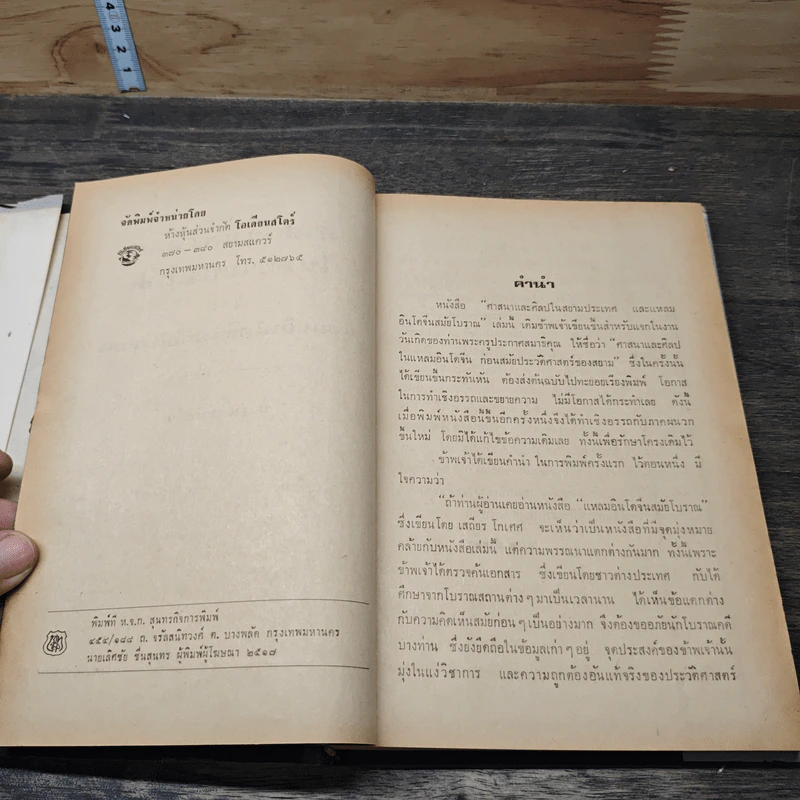 4
3
2
1
จัดพิมพ์จำหน่ายโดย
ห้างหุ้นส่วนจำกัด โอเดียนสโตร์
๓๗๐ – ๓๘๐ สยามสแควร์
กรุงเทพมหานคร โทร. ๕๑๒๗๖๕
พิมพ์ที่ ห.จ.ก. สุนทรกิจการพิมพ์
๔๕๔/๑๘๘ ถ. จรัลสนิทวงศ์ ต. บางพลัด กรุงเทพมหานคร
นายเลิศชัย ชื่นสุนทร ผู้พิมพ์ผู้โฆษณา ๒๕๑๗
คำนำ
หนังสือ “ศาสนาและศิลปในสยามประเทศ และแหลม
อินโดจีนสมัยโบราณ” เล่มนี้ เดิมข้าพเจ้าเขียนขึ้นสำหรับแจกในงาน
วันเกิดของท่านพระครูประกาศสมาธิคุณ ให้ชื่อว่า “ศาสนาและศิลป
ในแหลมอินโดจีน ก่อนสมัยประวัติศาสตร์ของสยาม” ซึ่งในครั้งนั้น
ได้เขียนขึ้นกระทันหัน ต้องส่งต้นฉบับไปทะยอยเรียงพิมพ์ โอกาส
ในการทำเชิงอรรถและขยายความ ไม่มีโอกาสได้กระทำเลย ดังนั้น
เมื่อพิมพ์หนังสือนี้ขึ้นอีกครั้งหนึ่งจึงได้ทำเชิงอรรถกับภาคผนวก
ขึ้นใหม่ โดยมิได้แก้ไขข้อความเดิมเลย ทั้งนี้เพื่อรักษาโครงเดิมไว้
ข้าพเจ้าได้เขียนคำนำ ในการพิมพ์ครั้งแรก ไว้ตอนหนึ่ง มี
ใจความว่า
“ถ้าท่านผู้อ่านเคยอ่านหนังสือ “แหลมอินโดจีนสมัยโบราณ”
ซึ่งเขียนโดย เสถียร โกเศศ จะเห็นว่าเป็นหนังสือที่มีจุดมุ่งหมาย
คล้ายกับหนังสือเล่มนี้ แต่ความพรรณนาแตกต่างกันมาก ทั้งนี้เพราะ
ข้าพเจ้าได้ตรวจค้นเอกสาร ซึ่งเขียนโดยชาวต่างประเทศ กับได้
ศึกษาจากโบราณสถานต่างๆ มาเป็นเวลานาน ได้เห็นข้อแตกต่าง
กับความคิดเห็นสมัยก่อนๆ เป็นอย่างมาก จึงต้องขออภัยนักโบราณคดี
บางท่าน ซึ่งยังยึดถือในข้อมูลเก่าๆ อยู่ จุดประสงค์ของข้าพเจ้านั้น
มุ่งในแง่วิชาการ และความถูกต้องอันแท้จริงของประวัติศาสตร์